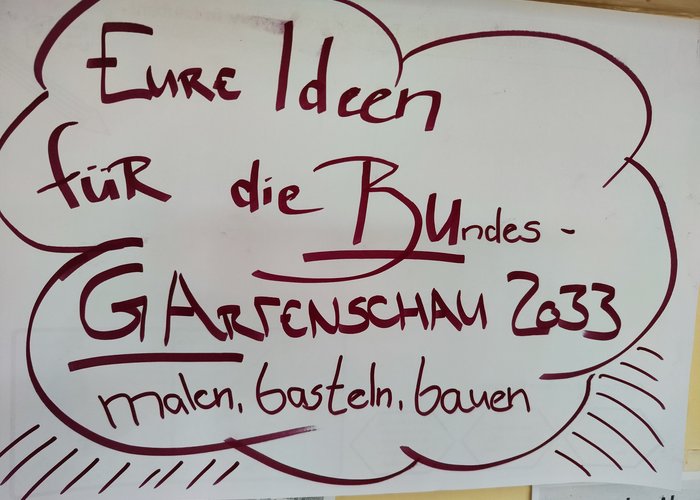 Eure Ideen
für die Bundes-
Gartenschau 2033
malen, basteln, bauen